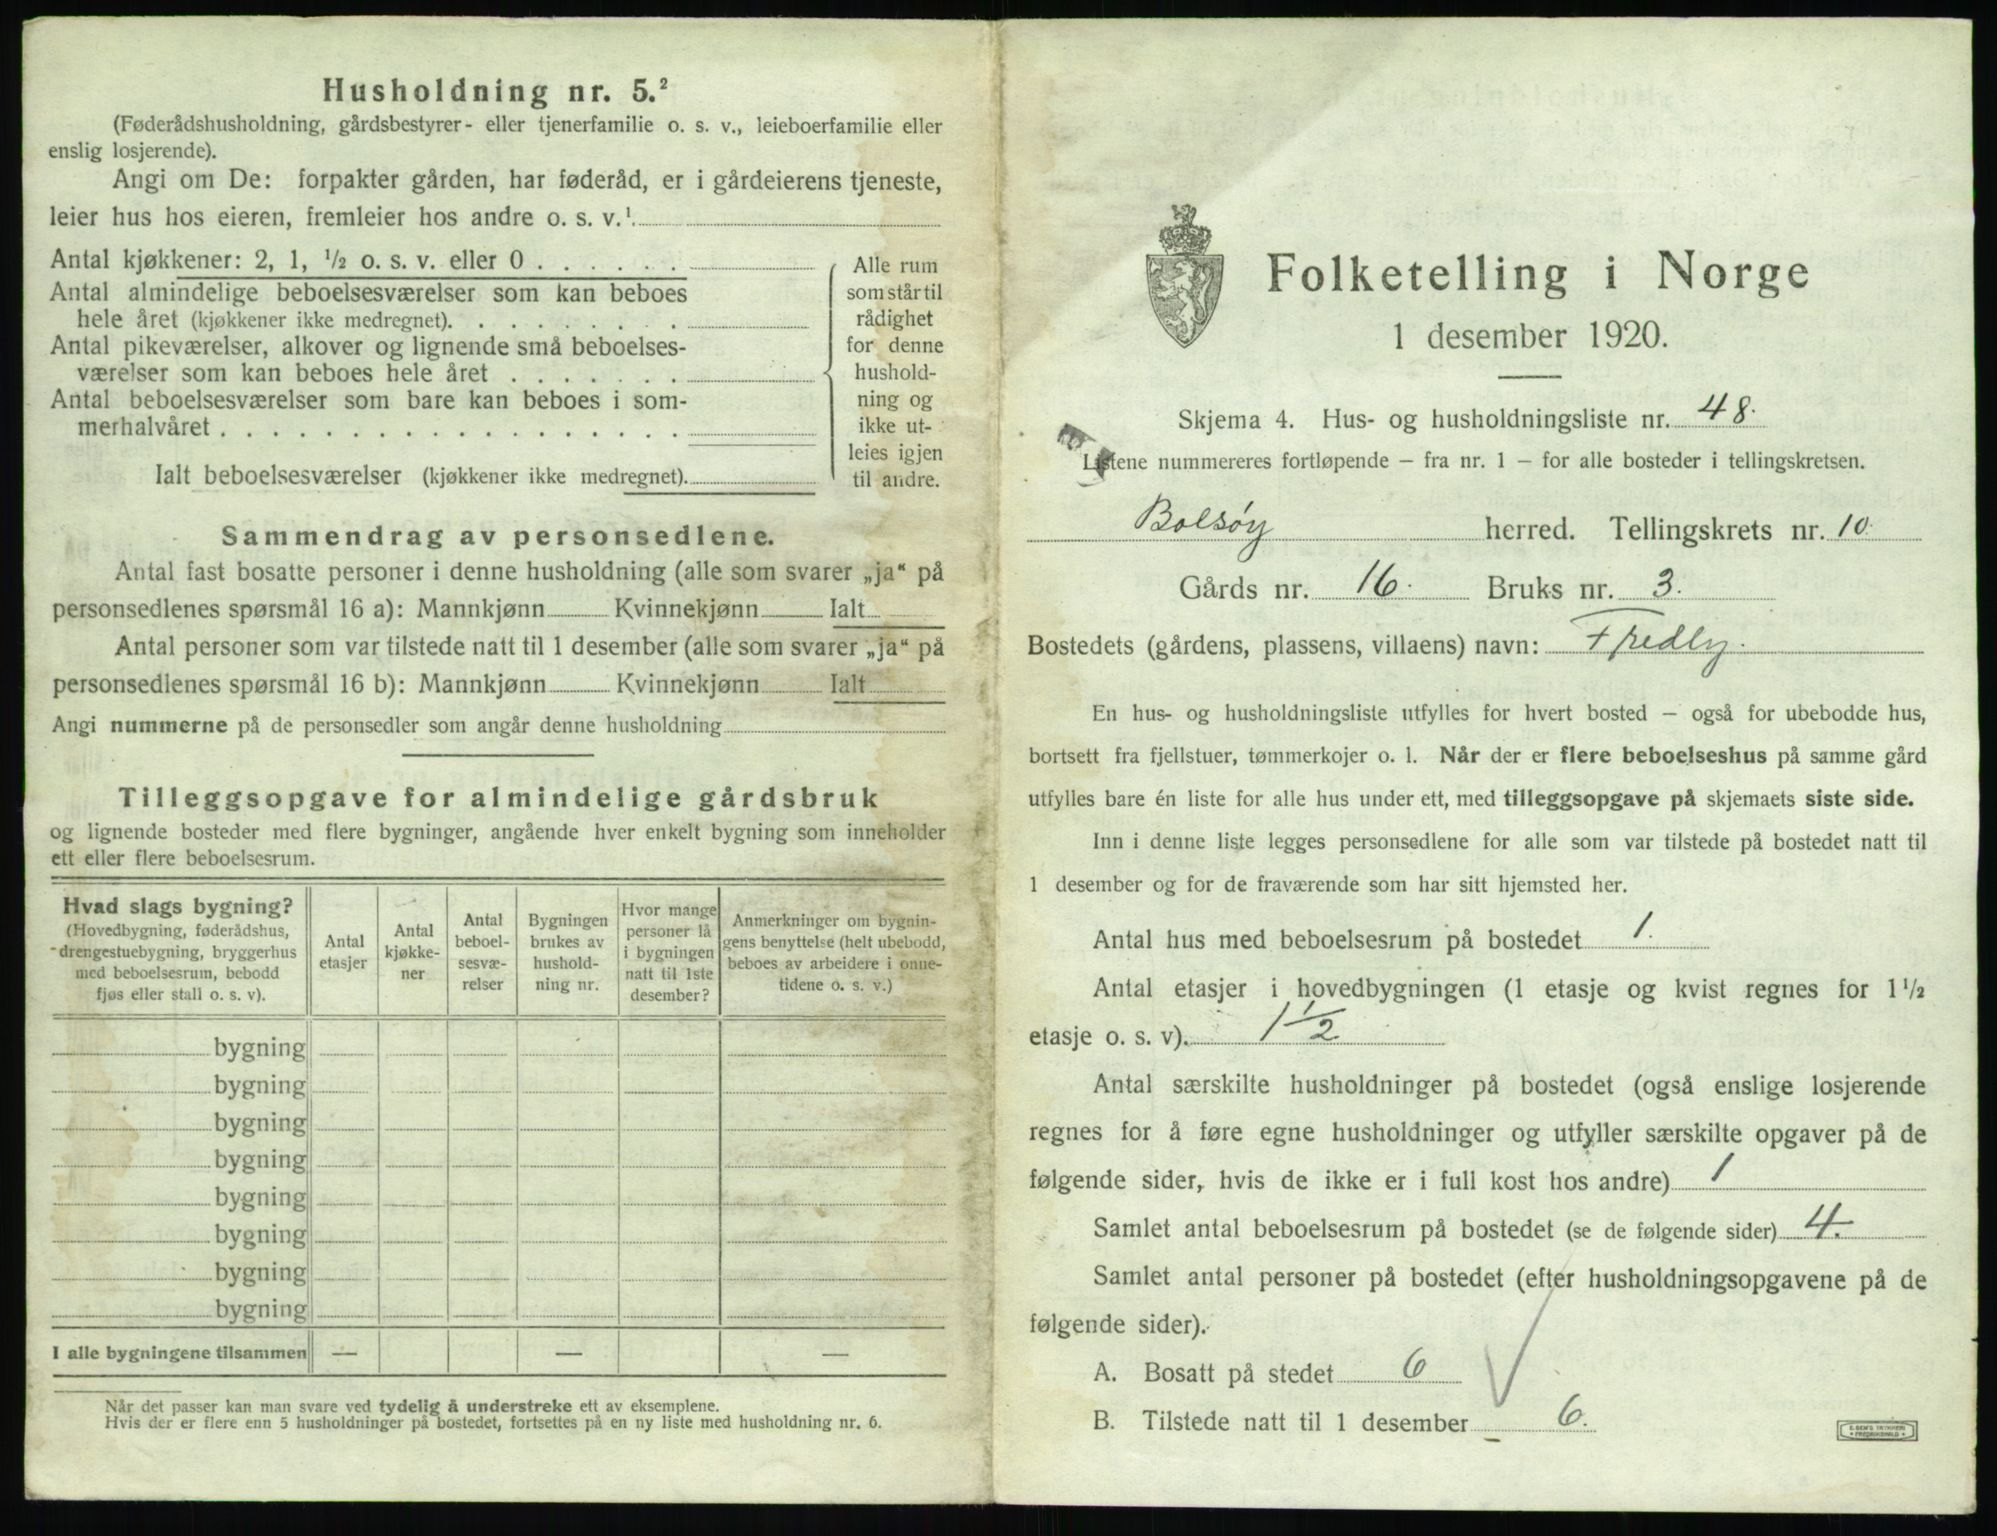 Husholdning nr. 5.²
(Føderådshusholdning, gårdsbestyrer- eller tjenerfamilie o. s. v., leieboerfamilie eller
enslig losjerende).
Angi om De: forpakter gården, har føderåd, er i gårdeierens tjeneste,
leier hus hos eieren, fremleier hos andre o. s. v.¹
Antal kjøkkener: 2, 1, ½ o. s. v. eller 0 . . . . . .
Antal almindelige beboelsesværelser som kan beboes
hele året (kjøkkener ikke medregnet). . . . . . . .
Antal pikeværelser, alkover og lignende små beboelses-
værelser som kan beboes hele året . . . . . . .
Antal beboelsesværelser som bare kan beboes i som-
merhalvåret . . . . . . . . . . . . . . . . . .
Ialt beboelsesværelser (kjøkkener ikke medregnet).
Alle rum
som står til
rådighet
for denne
hushold-
ning og
ikke ut-
leies igjen
til andre.
Sammendrag av personsedlene.
Antal fast bosatte personer i denne husholdning (alle som svarer „ja“ på
personsedlenes spørsmål 16 a): Mannkjønn Kvinnekjønn Ialt
Antal personer som var tilstede natt til 1 desember (alle som svarer „ja“ på
personsedlenes spørsmål 16 b): Mannkjønn Kvinnekjønn Ialt
Angi nummerne på de personsedler som angår denne husholdning
Tilleggsopgave for almindelige gårdsbruk
og lignende bosteder med flere bygninger, angående hver enkelt bygning som inneholder
ett eller flere beboelsesrum.
Hvad slags bygning?
(Hovedbygning, føderådshus,
drengestuebygning, bryggerhus
med beboelsesrum, bebodd
fjøs eller stall o. s. v).
Antal
etasjer
Antal
kjøkke-
ner
Antal
beboel-
sesvæ-
relser
Bygningen
brukes av
hushold-
ning nr.
Hvor mange
personer lå
i bygningen
natt til 1ste
desember?
Anmerkninger om bygnin-
gens benyttelse (helt ubebodd,
beboes av arbeidere i onne-
tidene o. s. v.)
bygning
bygning
bygning
bygning
bygning
bygning
bygning
bygning
I alle bygningene tilsammen — — —
Når det passer kan man svare ved tydelig å understreke ett av eksemplene.
Hvis der er flere enn 5 husholdninger på bostedet, fortsettes på en ny liste med husholdning nr. 6.
Folketelling i Norge
1 desember 1920.
Skjema 4. Hus- og husholdningsliste nr. 48.
Listene nummereres fortløpende – fra nr. 1 – for alle bosteder i tellingskretsen.
Bolsøy herred. Tellingskrets nr. 10.
Gårds nr. 16. Bruks nr. 3.
Bostedets (gårdens, plassens, villaens) navn: Fredly.
En hus- og husholdningsliste utfylles for hvert bosted – også for ubebodde hus,
bortsett fra fjellstuer, tømmerkojer o. l. Når der er flere beboelseshus på samme gård
utfylles bare én liste for alle hus under ett, med tilleggsopgave på skjemaets siste side.
Inn i denne liste legges personsedlene for alle som var tilstede på bostedet natt til
1 desember og for de fraværende som har sitt hjemsted her.
Antal hus med beboelsesrum på bostedet 1.
Antal etasjer i hovedbygningen (1 etasje og kvist regnes for 1½
etasje o. s. v). 1½
Antal særskilte husholdninger på bostedet (også enslige losjerende
regnes for å føre egne husholdninger og utfyller særskilte opgaver på de
følgende sider, hvis de ikke er i full kost hos andre) 1
Samlet antal beboelsesrum på bostedet (se de følgende sider) 4.
Samlet antal personer på bostedet (efter husholdningsopgavene på de
følgende sider).
A. Bosatt på stedet 6
B. Tilstede natt til 1 desember 6.